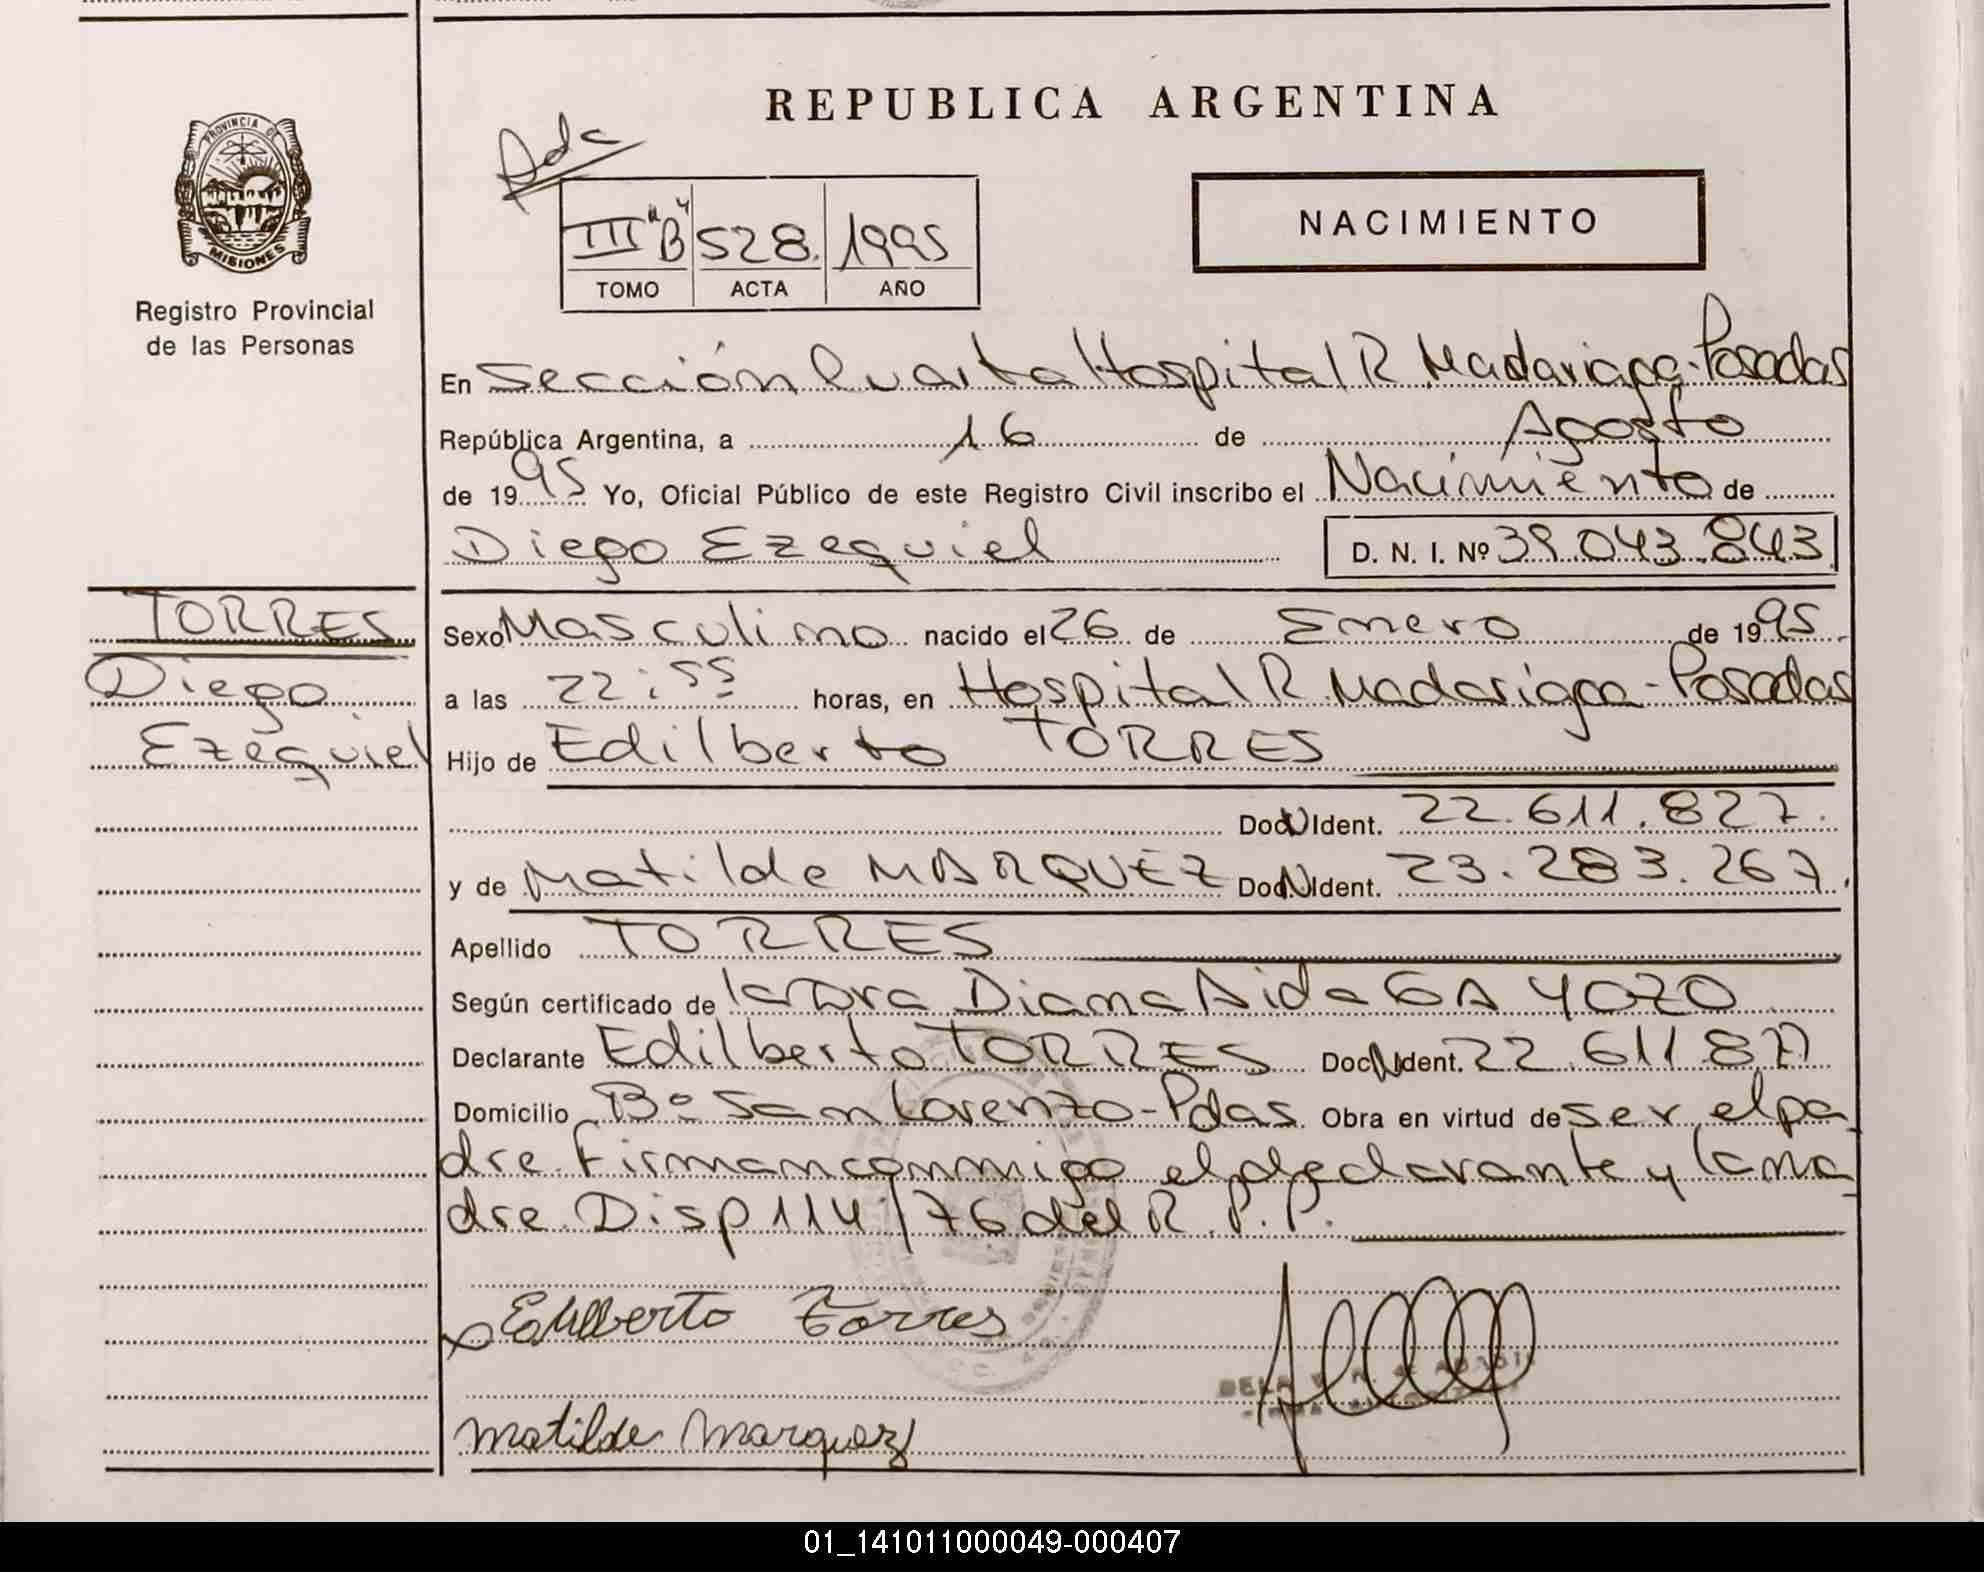 PROVINCIA DE
MISIONES
Registro Provincial
de las Personas
TORRES
Diego
Ezequiel
REPUBLICA ARGENTINA
NACIMIENTO
III "B" 528. 1995
TOMO ACTA AÑO
En Sección Cuarta Hospital R Madariaga-Posadas
República Argentina, a 16 de Agosto
de 1995 Yo, Oficial Público de este Registro Civil inscribo el Nacimiento de
Diego Ezequiel D. N. I. Nº 39.043.843
Sexo Masculino nacido el 26 de Enero de 1995.
a las 22:55 horas, en Hospital R. Madariaga-Posadas
Hijo de Edilberto TORRES
Doc N Ident. 22.611.827.
y de Matilde MARQUEZ Doc N Ident. 23.283.267.
Apellido TORRES
Según certificado de la Dra Diana Aida GA 4020
Declarante Edilberto TORRES Doc N Ident. 22.611.827
Domicilio Bº San Lorenzo-Pdas. Obra en virtud de ser el pa
dre. Firman conmigo el declarante y la ma
dre. Disp 114/76 del R. P. P.
Edilberto Torres
Matilde Marquez
01_141011000049-000407